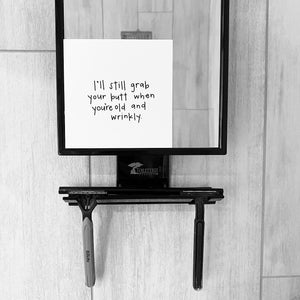 I'll still grab
your butt when
you're old and
wrinkly.